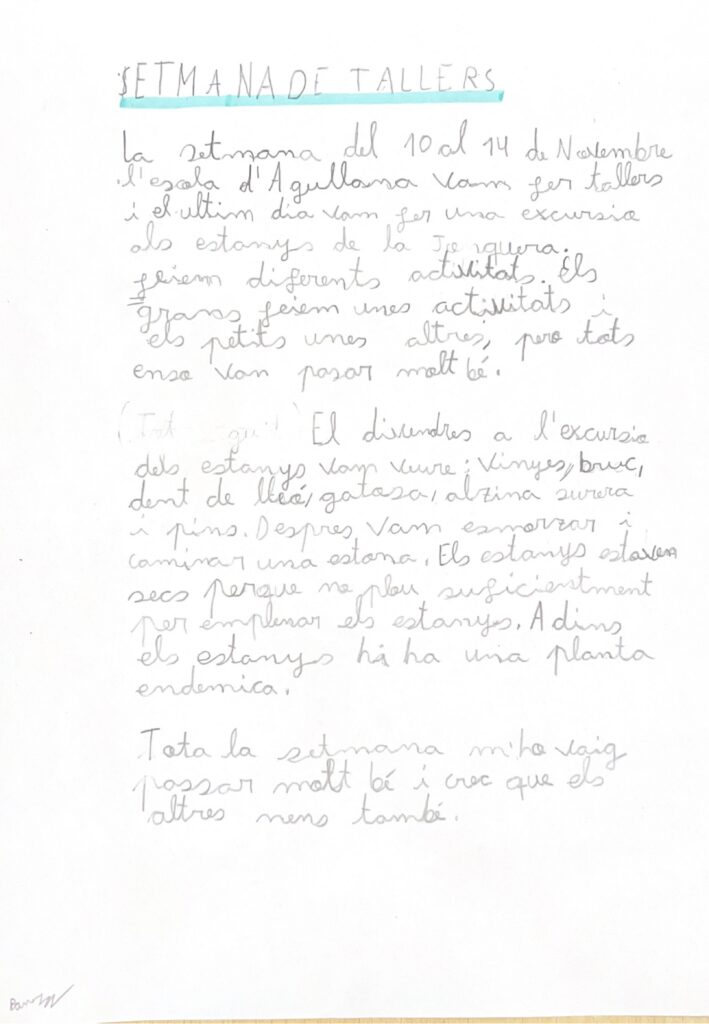 SETMANA DE TALLERS
La setmana del 10 al 14 de Novembre
l'escola d'Agullana vam fer tallers
i el ultim dia vam fer una excursio
als estanys de la Jonquera.
feiem diferents activitats. Els
grans feiem unes activitats i
els petits unes altres, pero tots
enso vam pasar molt bé.
El divendres a l'excursio
dels estanys vam veure: Vinyes, bruc,
dent de lleó, gatosa, alzina surera
i pins. Despres vam esmorzar i
caminar una estona. Els estanys estaven
secs perque no plou suficientment
per emplenar els estanys. A dins
els estanys hi ha una planta
endemica.
Tota la setmana m'ho vaig
passar molt bé i crec que els
altres nens també.